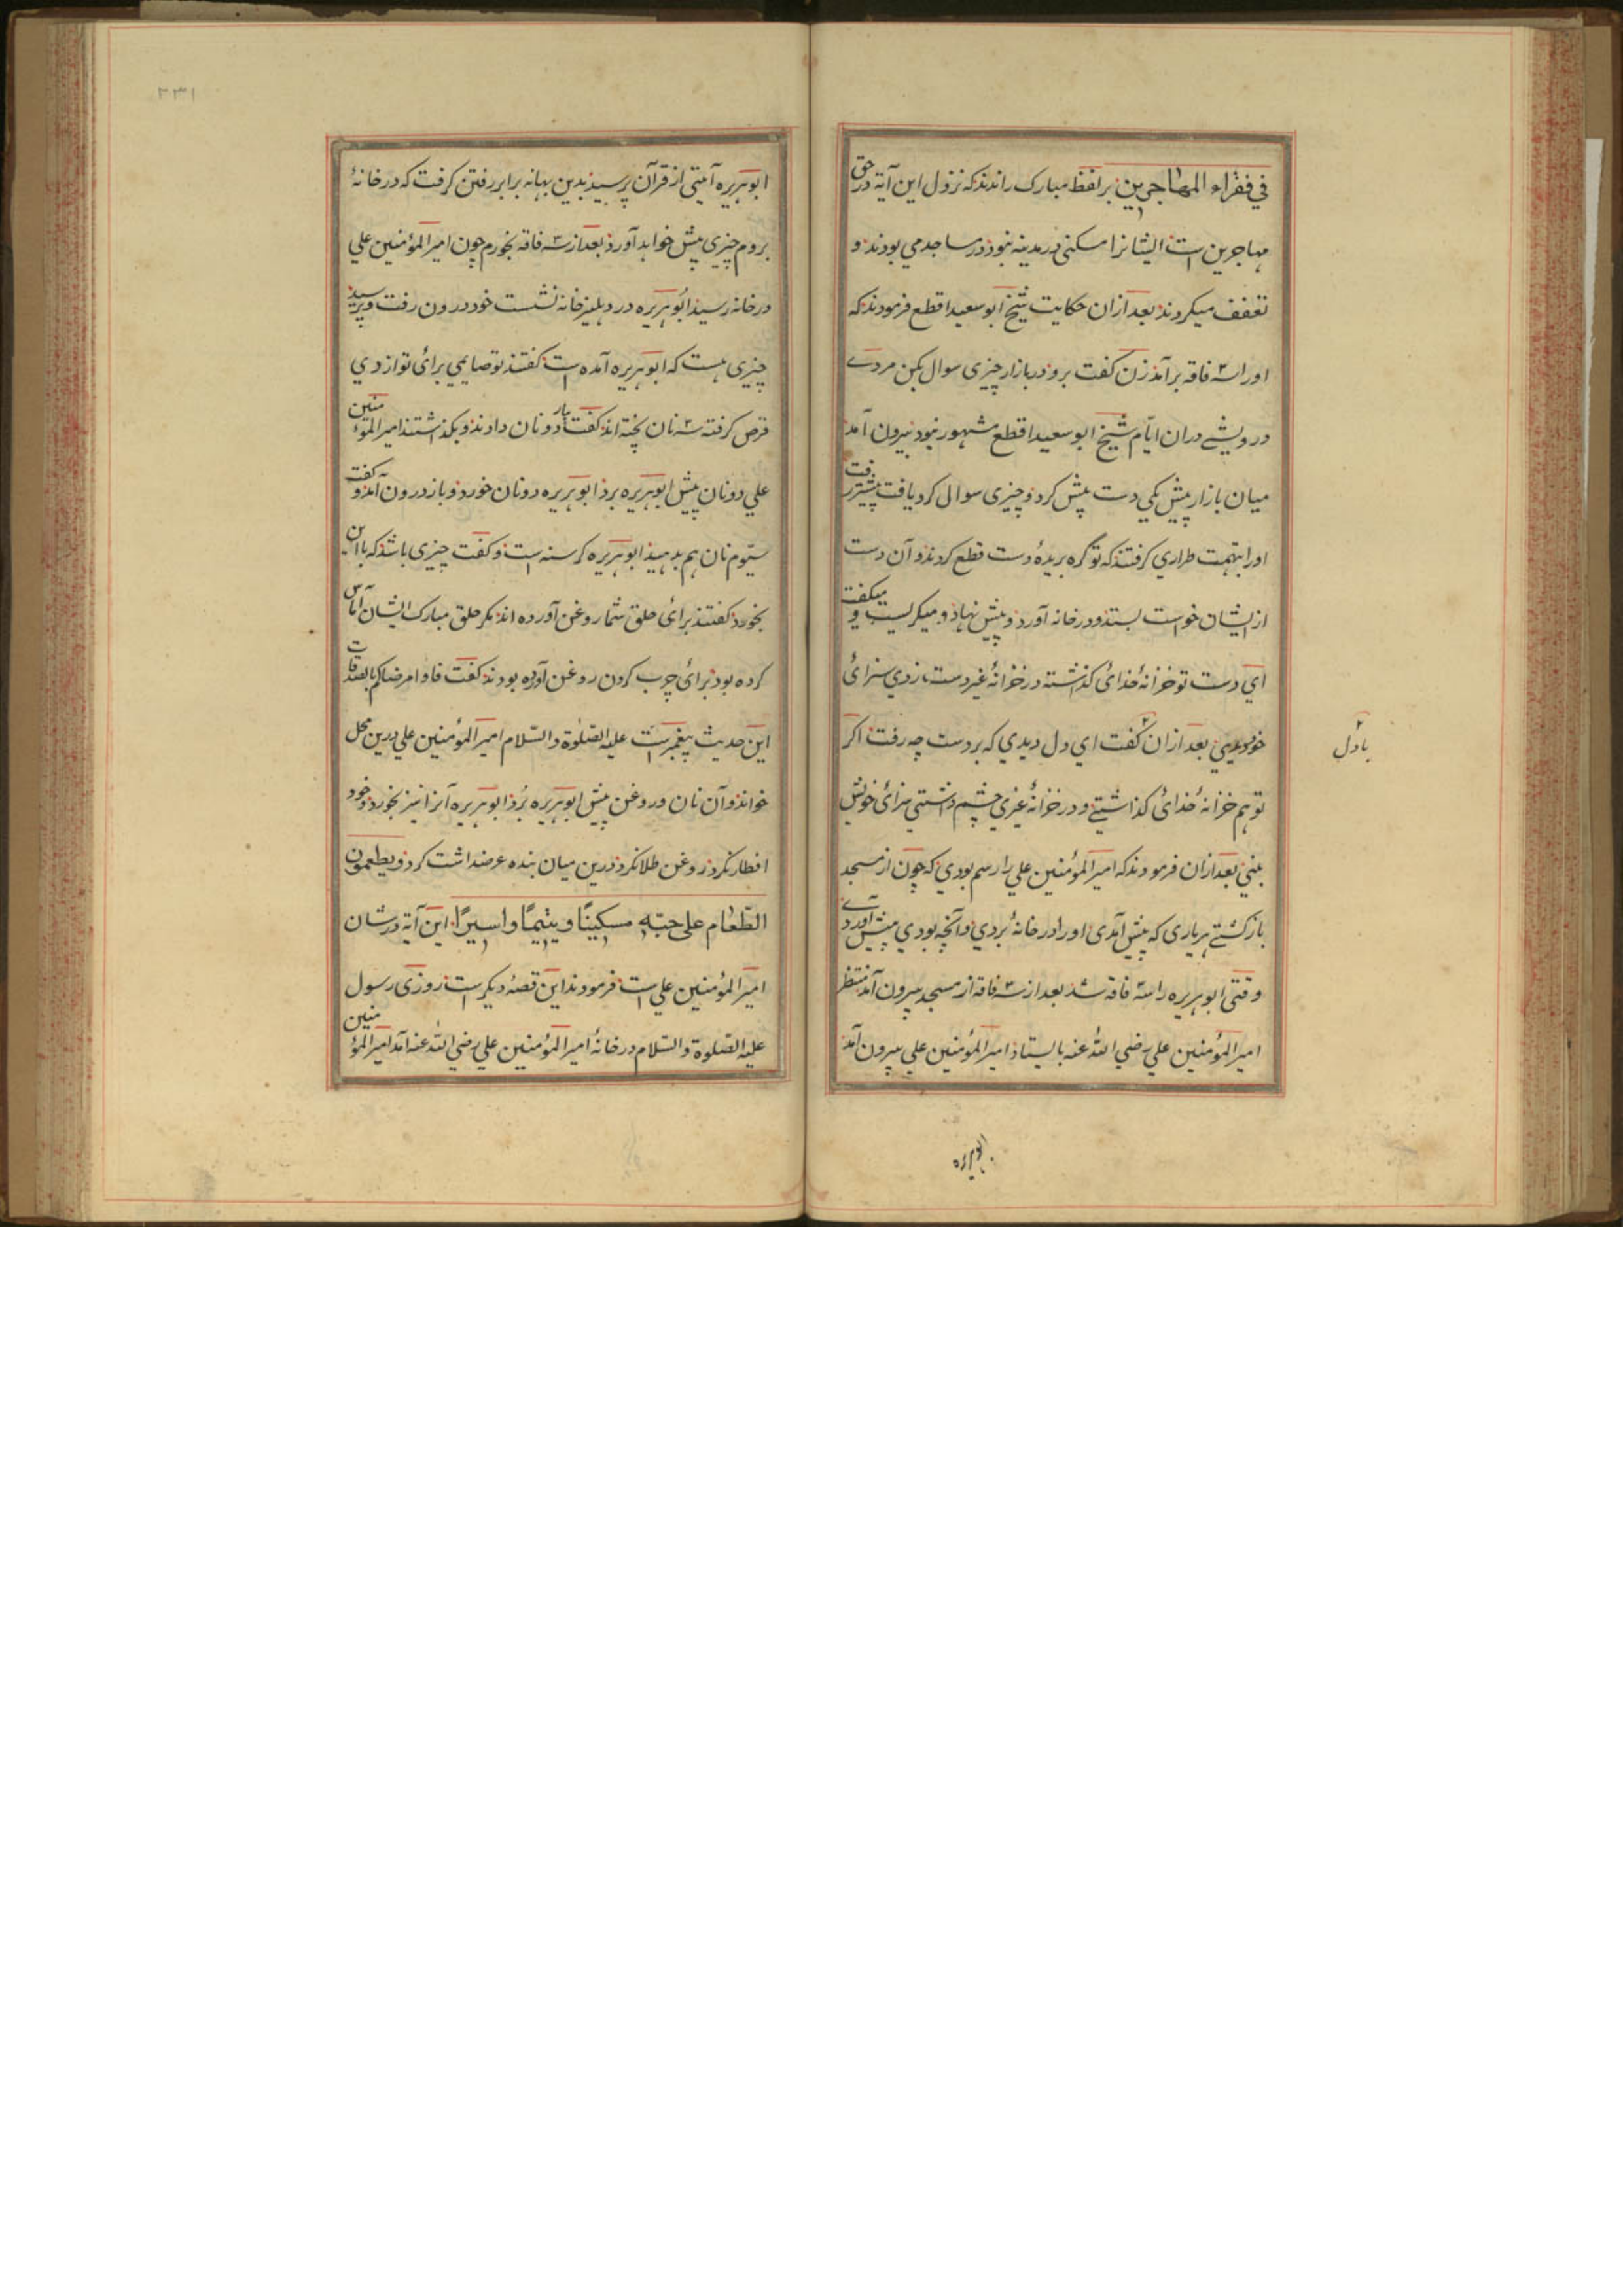 في فقراء المهاجرين بر لفظ مبارک راندند که نزول این آیة در حق
مهاجرین است ایشانرا مسکنی در مدینه نبوذ در مساجد می بودند و
تعفف میکردند بعد ازان حکایت شیخ ابو سعید اقطع فرمودند که
اورا سه فاقه برآمذ زن کفت برو در بازار چیزی سوال بکن مردے
درویشے دران ایّام شیخ ابو سعید اقطع مشهور نبود بیرون آمد
میان بازار پیش یکی دست پیش کرد و چیزی سوال کرد یافت پیشتر رفت
اورا بتهمت طراری کرفتند که تو کره بریدهٔ دست قطع کردند و آن دست
از ایشان خواست بستد و در خانه آورد و پیش نهاد و میکریست و میکفت
اي دست تو خزانهٔ خدائ کذاشته در خزانهٔ غیر دست زدي سزائ
خود دیدي بعد ازان کفت اي دل دیدي که بر دست چه رفت اکر
تو هم خزانهٔ خدائ کذاشتے و در خزانهٔ غیری چشم داشتی سزائ خویش
بینی بعد ازان فرمودند که امیر المؤمنین علي را رسم بودي که چون از مسجد
باز کشتے هر یاری که پیش آمدی اورا در خانه بردي و آنچه بودي پیش آوردے
وقتی ابو هریره را سه فاقه شد بعد از سه فاقه از مسجد بیرون آمد منتظر
امیر المؤمنین علي رضي الله عنه بایستاد امیر المؤمنین علي بیرون آمد
ابو هریره
بادل
۲۳۱
ابو هریره آیتی از قرآن پرسید بدین بهانه برابر رفتن کرفت که در خانهٔ
بروم چیزی پیش خواهد آورد بعد از سه فاقه بخورم چون امیر المؤمنین علي
در خانه رسید ابو هریره در دهلیز خانه نشست خود درون رفت و پرسید
چیزی هست که ابو هریره آمده است کفتند تو صایمی برائ تو از دي
قرص کرفته سه نان پخته اند کفت بیار دو نان دادند و بکذاشتند امیر المؤمنین
علي دو نان پیش ابو هریره برد ابو هریره دو نان خورد و باز درون آمد و کفت
سیّوم نان هم بدهید ابو هریره کرسنه است و کفت چیزی باشد که با این
بخورد کفتند برائ حلق شما روغن آورده اند مکر حلق مبارک ایشان آماس
کرده بود برائ چرب کردن روغن آورده بودند کفت داووا مرضاکم بالصدقات
این حدیث پیغمبر است علیه الصّلوة والسّلام امیر المؤمنین علي درین محل
خواند و آن نان و روغن پیش ابو هریره برد ابو هریره آنرا نیز بخورد و خود
افطار نکرد روغن طلا نکرد درین میان بنده عرضداشت کرد و یطعمون
الطّعام علی حبّه مسکینًا و یتیمًا و اسیرًا این آیة در شان
امیر المؤمنین علي است فرمودند این قصهٔ دیکر است روزی رسول
علیه الصّلوة والسّلام در خانهٔ امیر المؤمنین علي رضي الله عنه آمد امیر المؤمنین